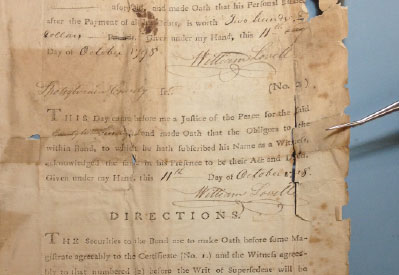 aforesaid, and made Oath that his Personal Estate
after the Payment of Debts, is worth Two hundred
Dollars Given under my Hand, this 11th
Day of October 1798
William Lowell
County Sct
(No. 2.)
THIS Day came before me a Justice of the Peace for the said
and made Oath that the Obligors to the
within Bond, to which he hath subscribed his Name as a Witness,
acknowledged the same in his Presence to be their Act and Deed.
Given under my Hand, this 11th Day of October
William Lowell
DIRECTIONS.
THE Securities to the Bond are to make Oath before some Ma-
gistrate agreeably to the Certificate (No. 1.) and the Witness agree-
ably to that numbered (2) before the Writ of Supersedeas will be